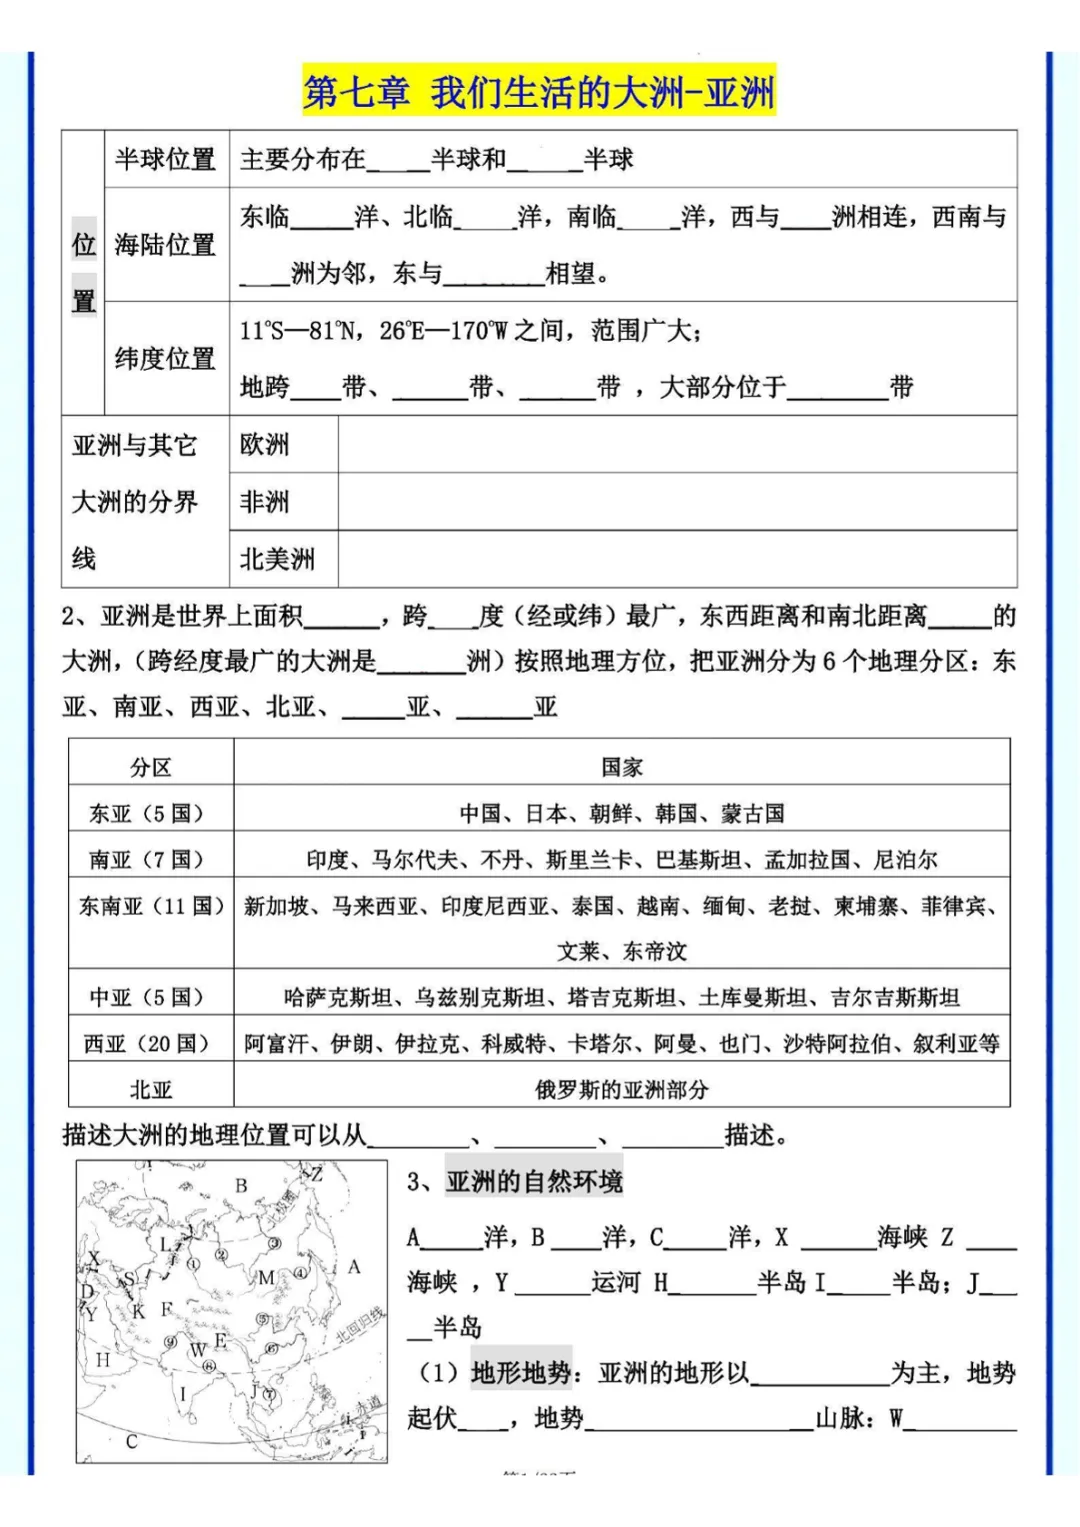 第七章 我们生活的大洲-亚洲
位置
半球位置 主要分布在_____半球和______半球
海陆位置 东临_____洋、北临_____洋，南临_____洋，西与____洲相连，西南与
____洲为邻，东与________相望。
纬度位置 11°S—81°N，26°E—170°W之间，范围广大；
地跨____带、______带、______带 ，大部分位于________带
亚洲与其它大洲的分界线
欧洲
非洲
北美洲
2、亚洲是世界上面积______，跨____度（经或纬）最广，东西距离和南北距离_____的
大洲，（跨经度最广的大洲是_______洲）按照地理方位，把亚洲分为6个地理分区：东
亚、南亚、西亚、北亚、_____亚、______亚
分区 国家
东亚（5国） 中国、日本、朝鲜、韩国、蒙古国
南亚（7国） 印度、马尔代夫、不丹、斯里兰卡、巴基斯坦、孟加拉国、尼泊尔
东南亚（11国） 新加坡、马来西亚、印度尼西亚、泰国、越南、缅甸、老挝、柬埔寨、菲律宾、
文莱、东帝汶
中亚（5国） 哈萨克斯坦、乌兹别克斯坦、塔吉克斯坦、土库曼斯坦、吉尔吉斯斯坦
西亚（20国） 阿富汗、伊朗、伊拉克、科威特、卡塔尔、阿曼、也门、沙特阿拉伯、叙利亚等
北亚 俄罗斯的亚洲部分
描述大洲的地理位置可以从________、________、________描述。
B Z
北极圈
L ② ③
① A
X S M ④
D
Y K F ⑤
北回归线
⑨ W E ⑥
H ⑧
I J ⑦
赤道
C
3、亚洲的自然环境
A_____洋，B____洋，C_____洋，X ______海峡 Z ____
海峡 ，Y______运河 H_______半岛I_____半岛；J___
__半岛
（1）地形地势：亚洲的地形以___________为主，地势
起伏____，地势__________________山脉：W_________